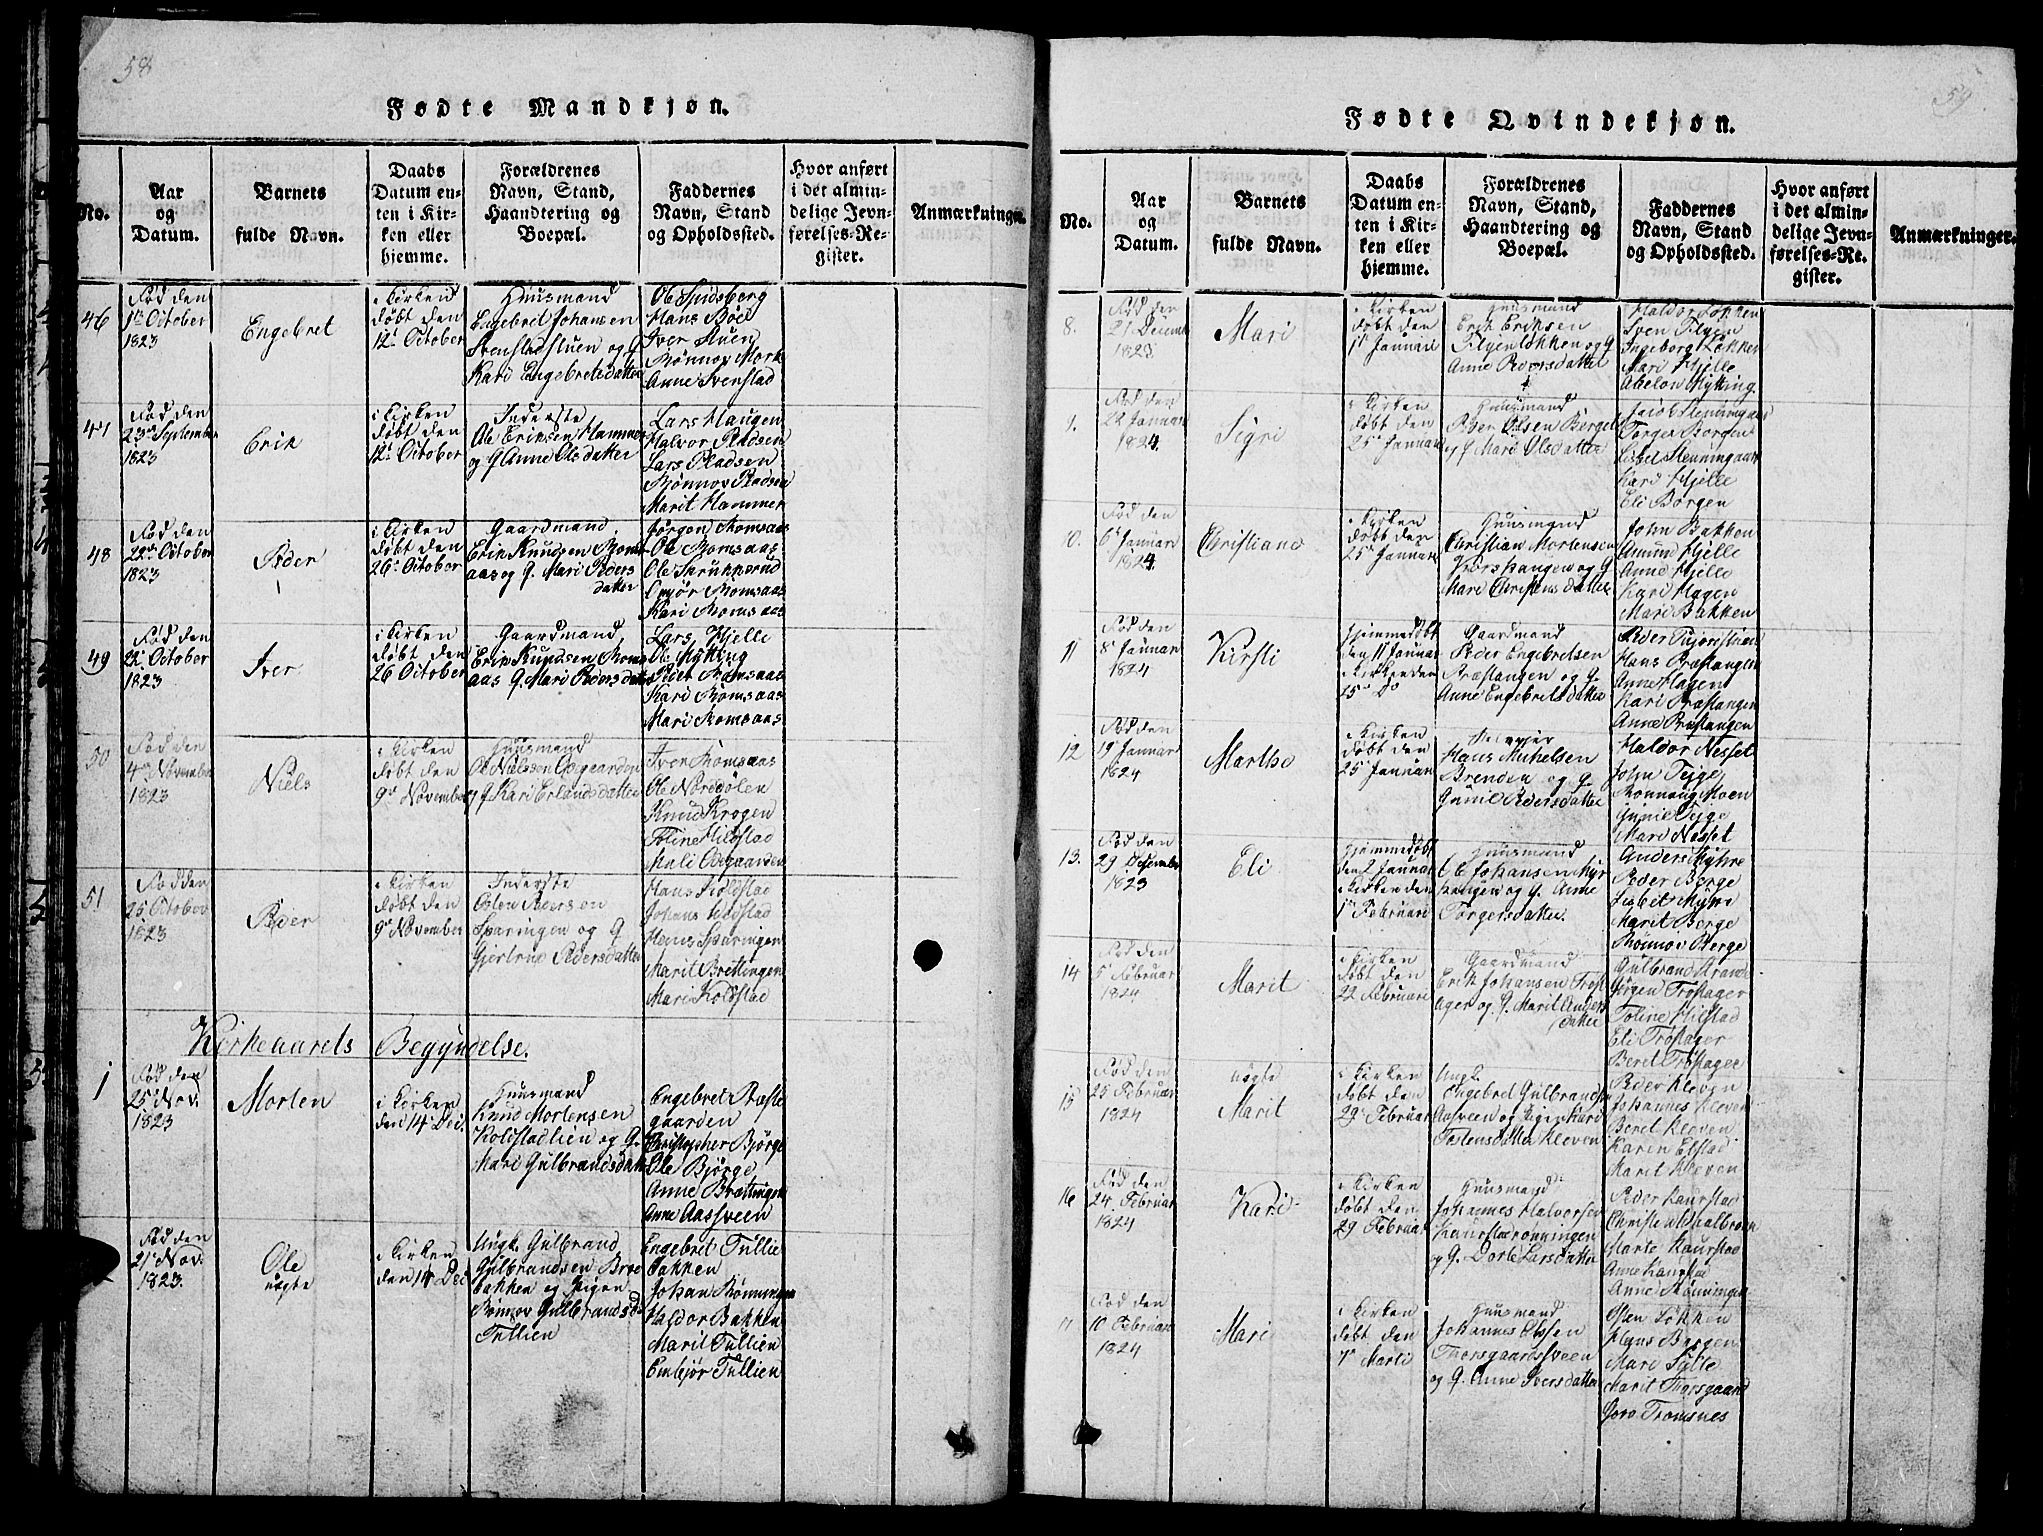 58
Fødte Mandkjøn.
No.
Aar
og
Datum.
Barnets
fulde Navn.
Daabs
Datum en-
ten i Kir-
ken eller
hjemme.
Forældrenes
Navn, Stand,
Haandtering og
Boepæl.
Faddernes
Navn, Stand
og Opholdssted.
Hvor anført
i det almin-
delige Jevn-
førelses-Re-
gister.
Anmærkninger.
46
Fød den
1te October
1823
Engebret
i Kirken
døbt den
12te October
Huusmand
Engebret Johansen
Svenstadstuen og G
Kari Engebretsdatter
Hans Bøe
Iver Stuen
Rønnov Mork
Anne Svenstad
47
Fød den
23de September
1823
Erik
i Kirken
døbt den
12te October
Inderste
Ole Eriksen Hammer
og G Anne Olsdatter
Lars Haugen
Halvor Pladsen
Lars Pladsen
Rønnov Pladsen
Marit Hammer
48
Fød den
22de October
1823
Peder
i Kirken
døbt den
26de October
Gaardmand
Erik Knudsen Roms
aas og G. Mari Peders
datter
Jørgen Romsaas
Ole Romsaas
Ole Skrukkerud
Romsaas
Kari Romsaas
49
Fød den
22de October
1823
Iver
i Kirken
døbt den
26 October
Gaardmand
Erik Knudsen Roms
aas G. Mari Pedersdatter
Lars Hjelle
Ole Mytting
Romsaas
Kari Romsaas
Mari Romsaas
50
Fød den
4de November
1823
Niels
i Kirken
døbt den
9de November
Huusmand
Ole Nielssen Opgaarden
og G. Kari Erlandsdatter
Iver Romsaas
Ole Norddølen
Knud Krogen
Hildstad
51
Fød den
25 October
1823
Peder
i Kirken
døbt den
9de November
Inderste
Pedersen
Sparingen og G
Gjertrud Pedersdatter
Hans Koldstad
Johans Koldstad
Hans Sparingen
Marit Brettingen
Mari Koldstad
Kirkeaarets Begyndelse.
1
Fød den
25 Nov.
1823
Morten
i Kirken
den 14 Dec.
Huusmand
Knud Mortensen
Koldstadlien og G.
Mari Gulbrandsdatter
Engebret Præste
gaarden
Christopher Bjørge
Ole Bjørge
Anne Brættingen
Anne Aassveen
Fød den
21 Nov.
1823.
Ole
uægte
i Kirken
den 14 Dec
Ungk. Gulbrand
Gulbrandsen
bakken og Pigen
Rønnov Gulbrandsd.
Tullien
Engebret Tullie
bakken
Johan Rønningen
Haldor Bakken
Marit Tullien
Embjør Tullien
59
Fødte Qvindekjøn.
No.
Aar
og
Datum.
Barnets
fulde Navn.
Daabs
Datum en-
ten i Kir-
ken eller
hjemme.
Forældrenes
Navn, Stand,
Haandtering og
Boepæl.
Faddernes
Navn, Stand
og Opholdssted.
Hvor anført
i det almin-
delige Jevn-
førelses-Re-
gister.
Anmærkninger.
8.
Fød den
21 Decemb
1823
Mari
i Kirken
døbt den
1te Januari
Huusmand
Erik Eriksen
Tilgenløkken og G
Anne Pedersdatter
Haldor Løkken
Sven Tilgen
Ingeborg Løkken
Mari Hjelle
Abelon Mytting
9.
Fød den
22 Januari
1824.
Sigri
i Kirken
døbt den
25de Januari
Huusmand
Peder Olsen
og G Mari Olsdatter
Torger Borgen
Kari Hjelle
Eli Borgen
10.
Fød den
6te Januari
1824.
Christiane
i Kirken
døbt den
25de Januari
Huusmand
Christian Mortensen
og G
Mari Christensdatter
John Bakken
Amund Hjelle
Anne Hjelle
Kari Hagen
Mari Bakken
11
Fød den
8de Januari
1824
Kirsti
Hjemmedøbt
den 11 Januari
i Kirken den
25de Do
Gaardmand
Peder Engebretsen
Præstangen og G.
Anne Engebretsdatter
Hans Præstangen
Anne Hagen
Kari Præstangen
Anne Præstangen
12
Fød den
19 Januari
1824
Marthe
i Kirken
døbt den
25de Januari
Hans Michelsen
Brenden og G
Gunil Pedersdatter
Haldor Nesset
John Teige
Rønnaug Moen
Gunil Teige
Mari Nesset
13.
Fød den
29 Desember
1823
Eli
Hjemmedøbt
den 2 Januari
i Kirken den
1te Februari
Huusmand
Ole Johansen Kir
hangen og G. Anne
Torgersdatter.
Anders Myhre
Peder Berge
Marit Berge
Rønnov Berge
14
Fød den
5 Februar
1824
Marit
i Kirken
døbt den
22 Februari
Gaardmand
Erik Johansen Trøst
ager og G. Marit Anders
datter
Gulbrand Strande
Jørgen Trøstager
Hilstad
Eli Trøstager
Beret Trøstager
15
Fød den
25 Februar
1824
uægte
Marit
i Kirken
døbt den
29de Februar
Ungk.
Engebret Gulbrandsen
Aasveen og Pigen Kari
Tostensdatter Kleven
Peder Kleven
Johannes Kleven
Beret Kleven
Karen Elstad
Marit Kleven
16
Fød den
24 Februar
1824
Kari
i Kirken
døbt den
29 Februar
Huusmand
Johannes Halvorsen
Kaurstadrønningen
og G. Dorte Larsdatter
Peder Kaurstad
Marte Kaurstad
Anne Kaurstad
Anne Rønningen
17
Fød den
10 Februar
1824
Mari
i Kirken
døbt den
7de Marti
Huusmand
Johannes Olssen
Thorsgaardssveen
og G. Anne Iversdatter
Osten Løkken
Hans Borgen
Marit Thorsgaard
Goro Tromsnes